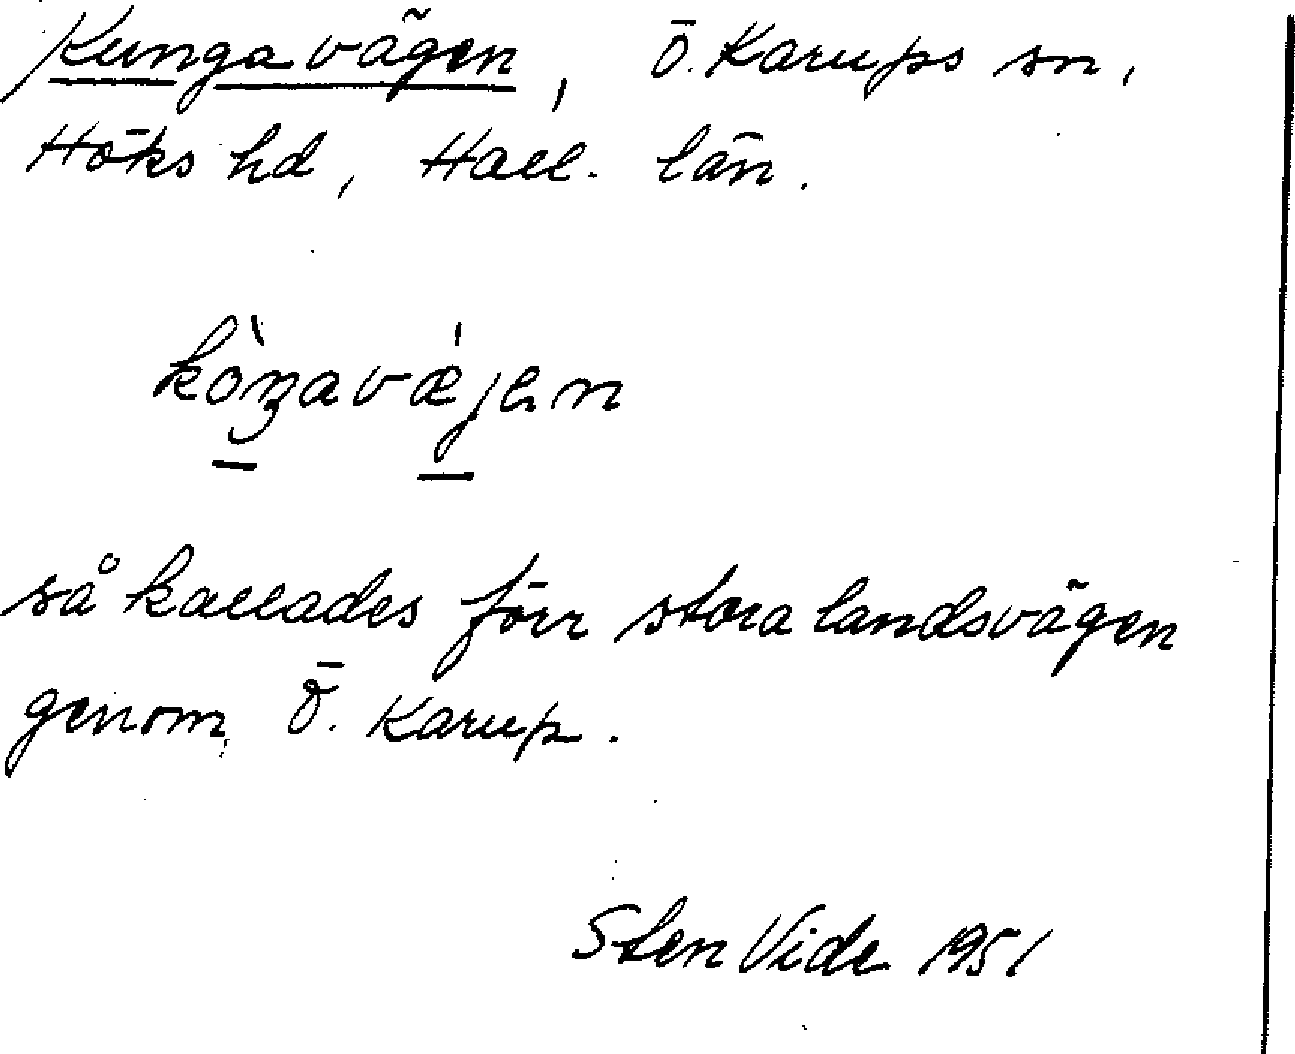 Kungavägen, Ö. Karups sn,
Höks hd, Hall. län.
kòŋavǽjen
så kallades förr stora landsvägen
genom Ö. Karup.
Sten Vide 1951